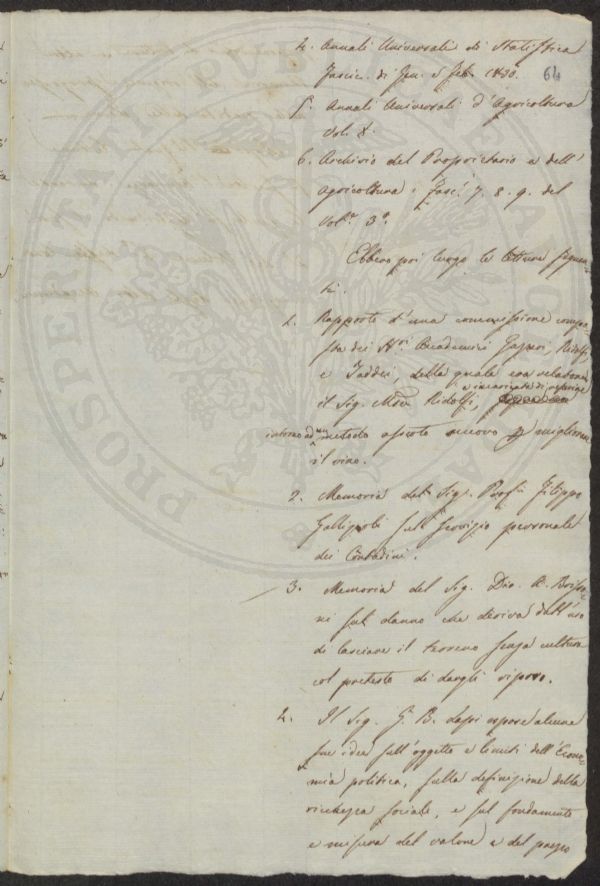 4. Annali Universali di Statistica
Fascic. di Gen. e Feb. 1830.
64
5. Annali Universali d'Agricoltura
Vol. X.
6. Archivio del Proprietario e dell'
Agricoltura; Fasc. 7. 8. 9. del
Vol.e 3.o
Ebbero poi luogo le letture seguen-
ti.
1. Rapporto d'una commissione compo-
sta dei SS.ri Accademici Gazzeri, Ridolfi,
e Taddei, della quale era relatore
e incaricata di referire
il Sig. Mse Ridolfi,
intorno ad un metodo asserto nuovo p migliorare
il vino.
2. Memoria del Sig. Prof. Filippo
Gallizioli sul servizio personale
dei Contadini.
3. Memoria del Sig. Dio. B.
ni sul danno che deriva dall'uso
di lasciare il terreno senza cultura
col pretesto di dargli riposo.
4. Il Sig. G. B. espose alcune
sue idee sull'oggetto e limiti dell'Econo-
mia politica, sulla definizione della
ricchezza sociale, e sul fondamento
e misura del valore e del prezzo
PROSPERITATI PUBLICAE AUGENDAE